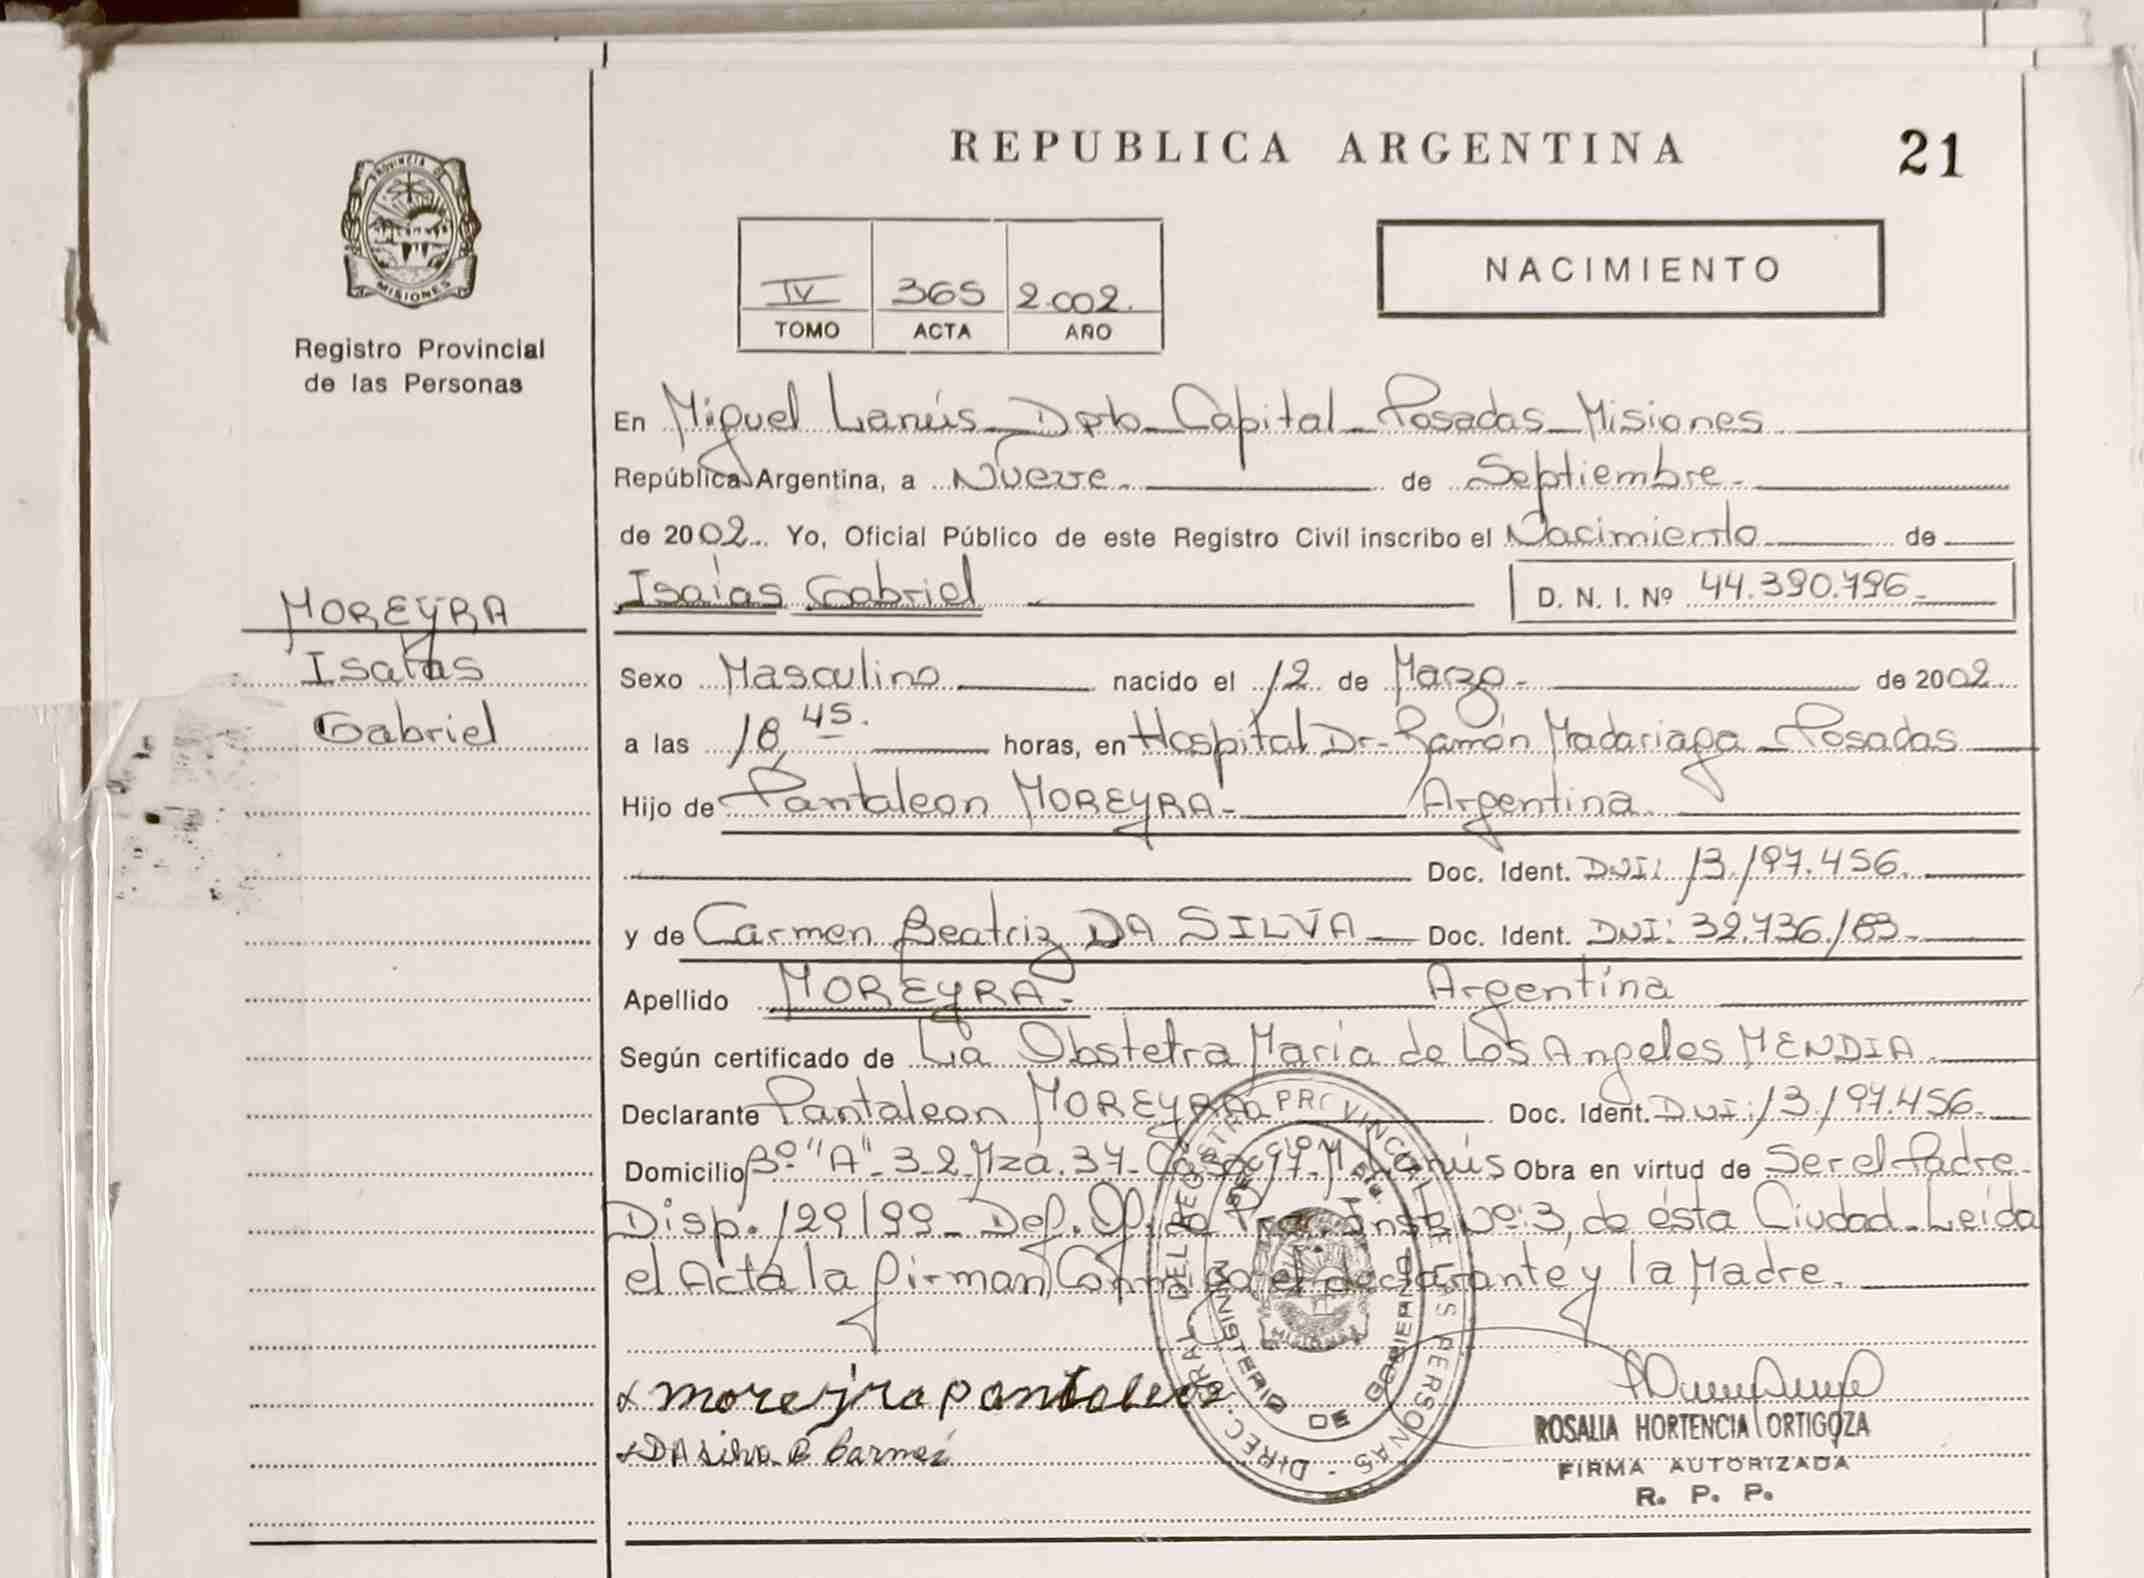 REPUBLICA ARGENTINA
21
PROVINCIA DE
MISIONES
Registro Provincial
de las Personas
IV 365 2.002.
TOMO ACTA AÑO
NACIMIENTO
En Miguel Lanús Dpto Capital Posadas Misiones
República Argentina, a Nueve de Septiembre
de 2002 Yo, Oficial Público de este Registro Civil inscribo el Nacimiento de
Isaías Gabriel D. N. I. Nº 44.390.796
MOREYRA
Isaías
Gabriel
Sexo Masculino nacido el 12 de Marzo de 2002
a las 18,45. horas, en Hospital Dr. Ramón Madariaga Posadas
Hijo de Pantaleon MOREYRA Argentina
Doc. Ident. DNI: 13.197.456.
y de Carmen Beatriz DA SILVA Doc. Ident. DNI: 32.736.183
Apellido MOREYRA Argentina
Según certificado de La Obstetra María de Los Angeles MENDIA
Declarante Pantaleon MOREYRA Doc. Ident. DNI: 13.197.456
Domicilio Bº "A" 3-2 Mza. 37 Casa M. Lanús Obra en virtud de Ser el Padre
Disp. 129/99 Def. Of. de Inst Nº: 3, de ésta Ciudad Leída
el Acta la firman Conmigo el declarante y la Madre.
moreyra pantaleon
DA silva B Carmen
DIREC. GRAL. DEL REGISTRO PROVINCIAL DE LAS PERSONAS
MINISTERIO DE GOBIERNO
ROSALIA HORTENCIA ORTIGOZA
FIRMA AUTORIZADA
R. P. P.